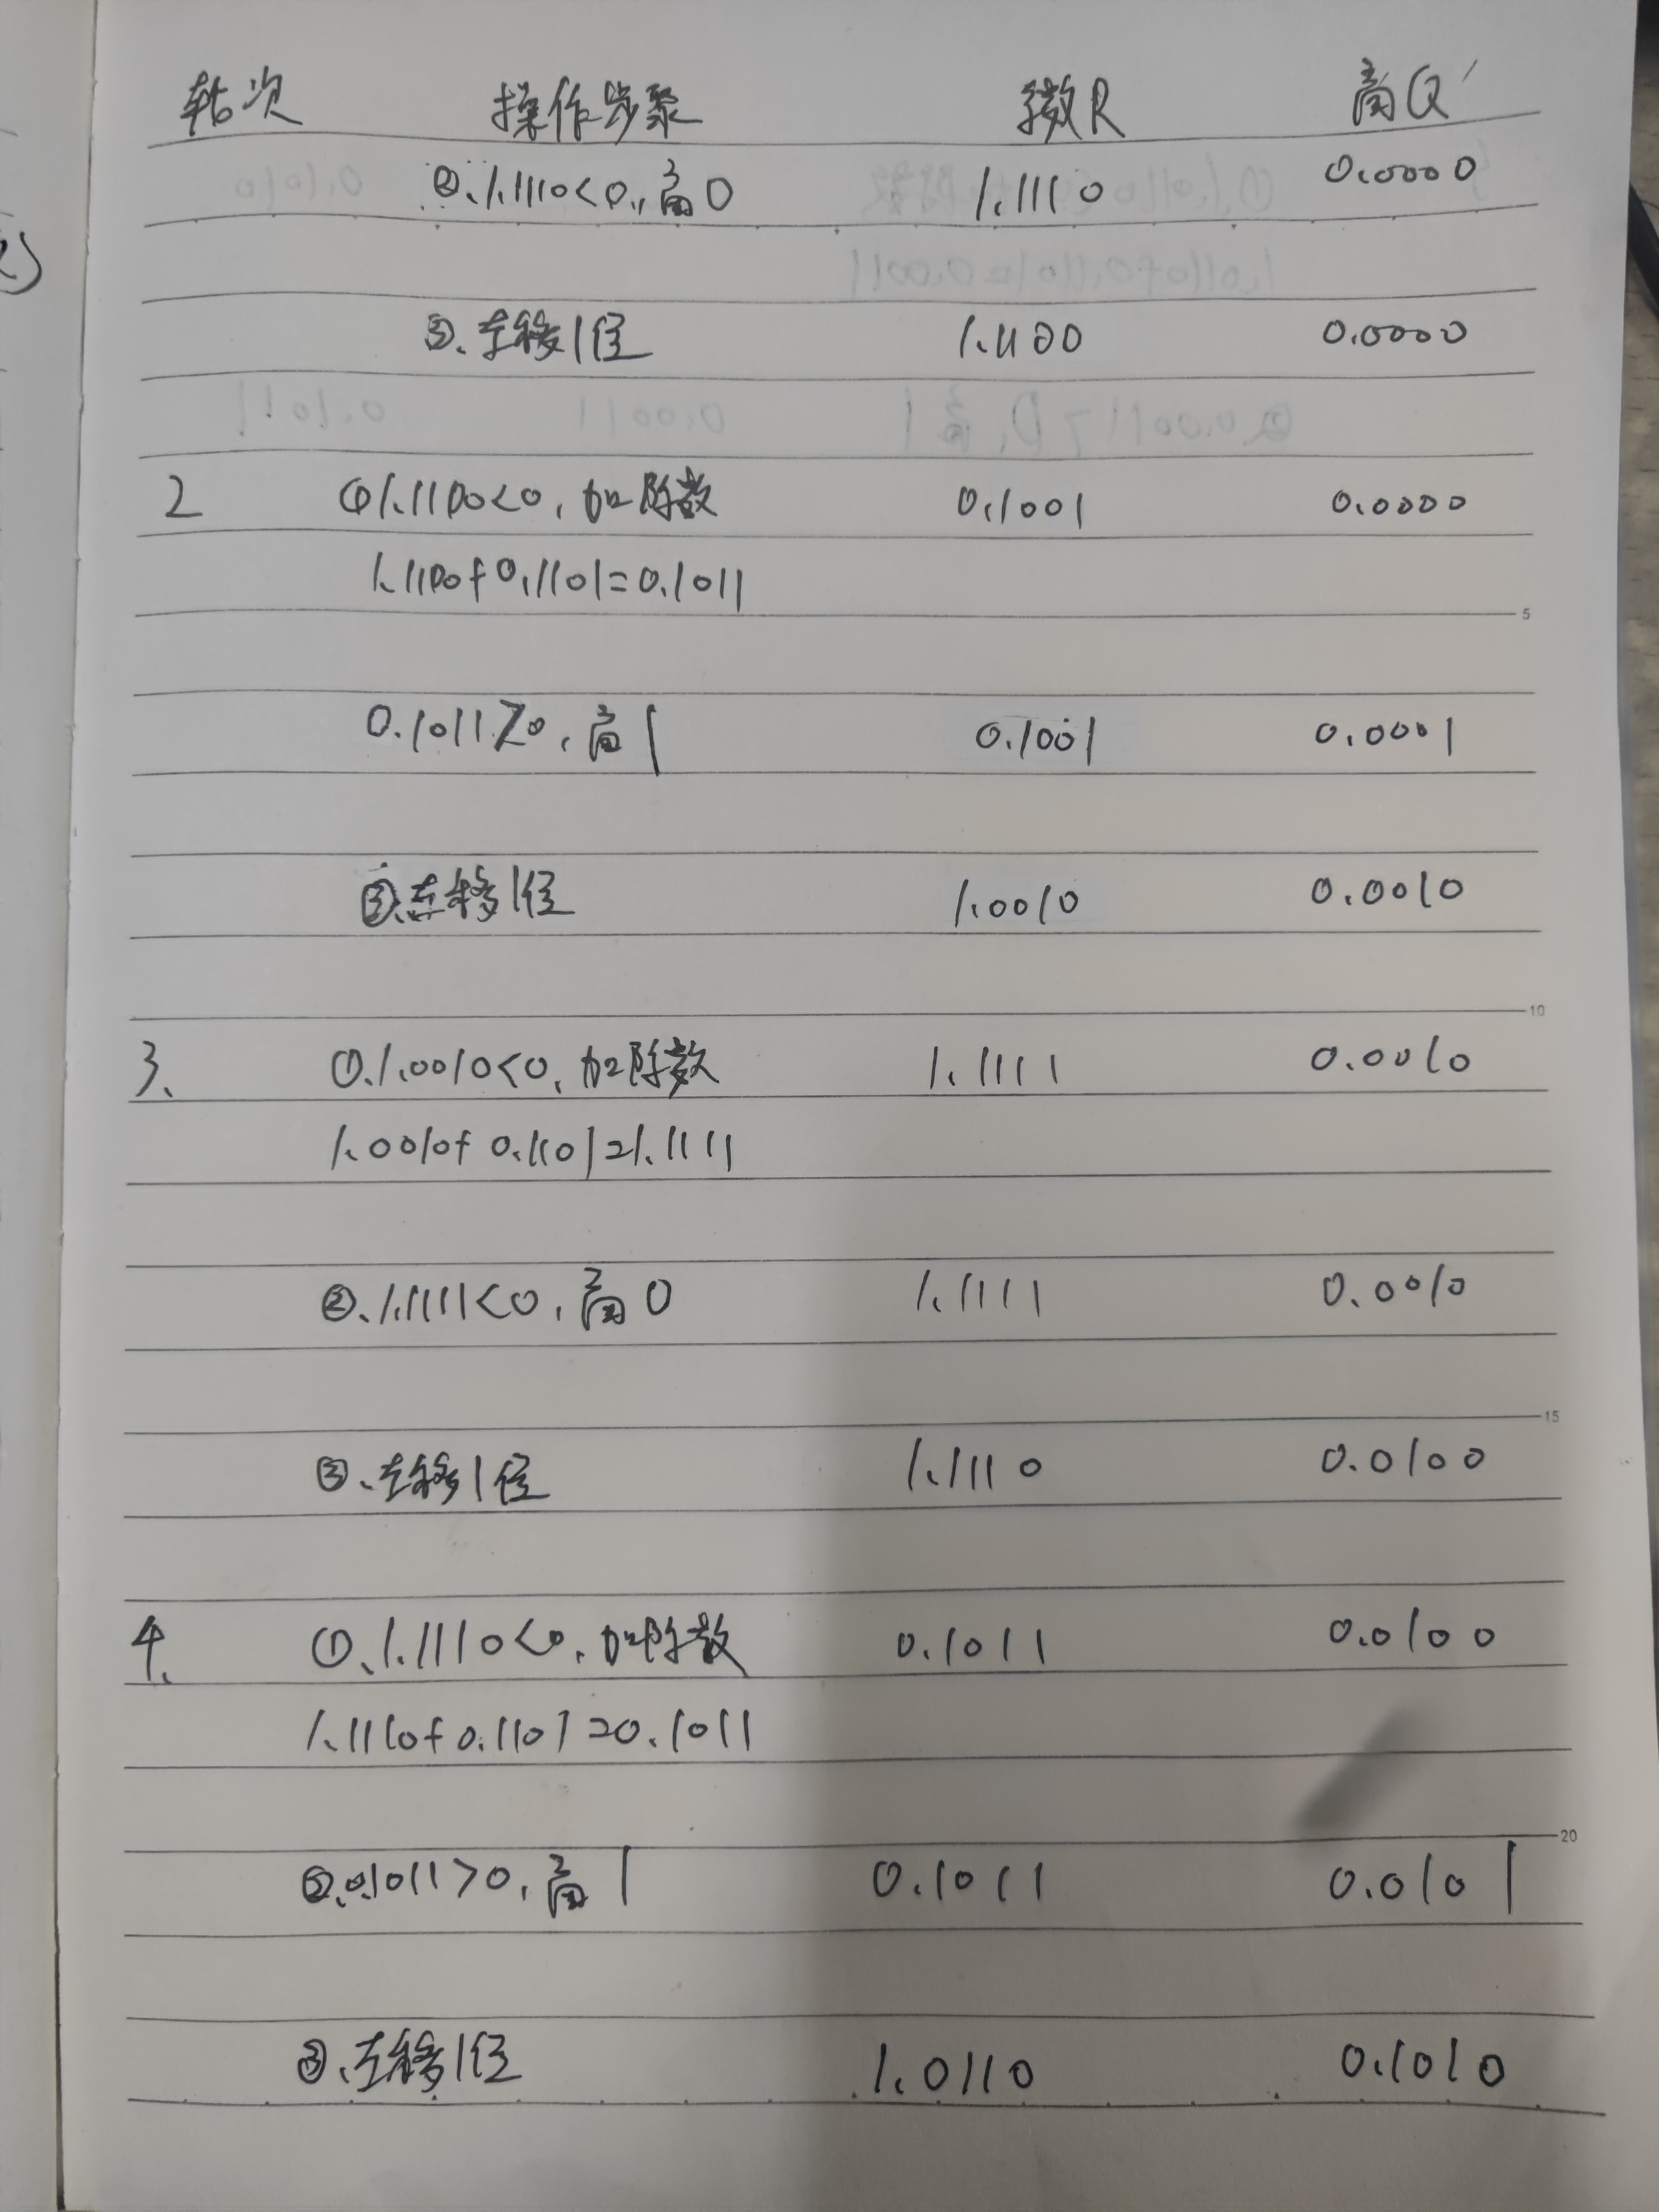 轮次 操作步聚 余数R 商Q
②.1.1110<0,商0 1.1110 0.0000
③.左移1位 1.1100 0.0000
2 ①1.1100<0,加除数 0.1001 0.0000
1.1100+0.1101=0.1011
5
0.1011≥0,商1 0.1001 0.0001
③.左移1位 1.0010 0.0010
10
3. ①.1.0010<0,加除数 1.1111 0.0010
1.0010+0.1101=1.1111
②.1.1111<0,商0 1.1111 0.0010
15
③.左移1位 1.1110 0.0100
4. ①.1.1110<0,加除数 0.1011 0.0100
1.1110+0.1101=0.1011
20
②.0.1011>0,商1 0.1011 0.0101
③.左移1位 1.0110 0.1010